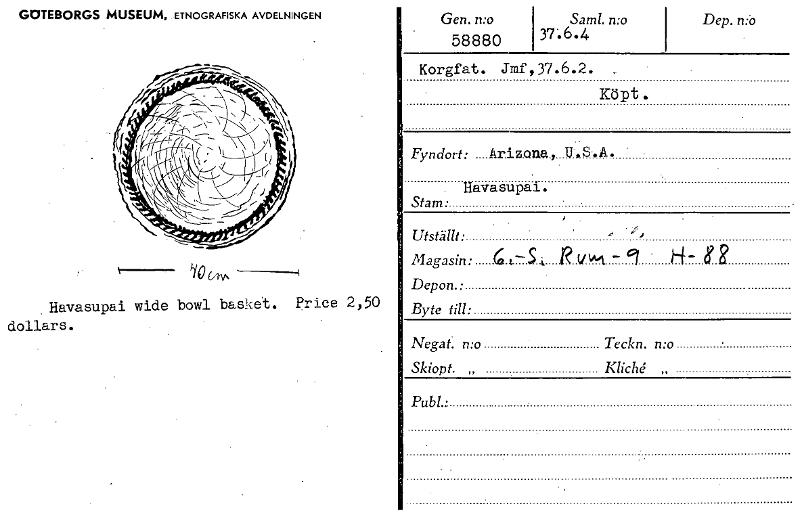 GÖTEBORGS MUSEUM, ETNOGRAFISKA AVDELNINGEN
40cm
Havasupai wide bowl basket. Price 2,50
dollars.
Gen. n:o Saml. n:o Dep. n:o
58880 37.6.4
Korgfat. Jmf,37.6.2.
Köpt.
Fyndort: Arizona, U.S.A.
Havasupai.
Stam:
Utställt:
Magasin: G.-S. Rum-9 H-88
Depon.:
Byte till:
Negat. n:o Teckn. n:o
Skiopt. „ Kliché „
Publ.: